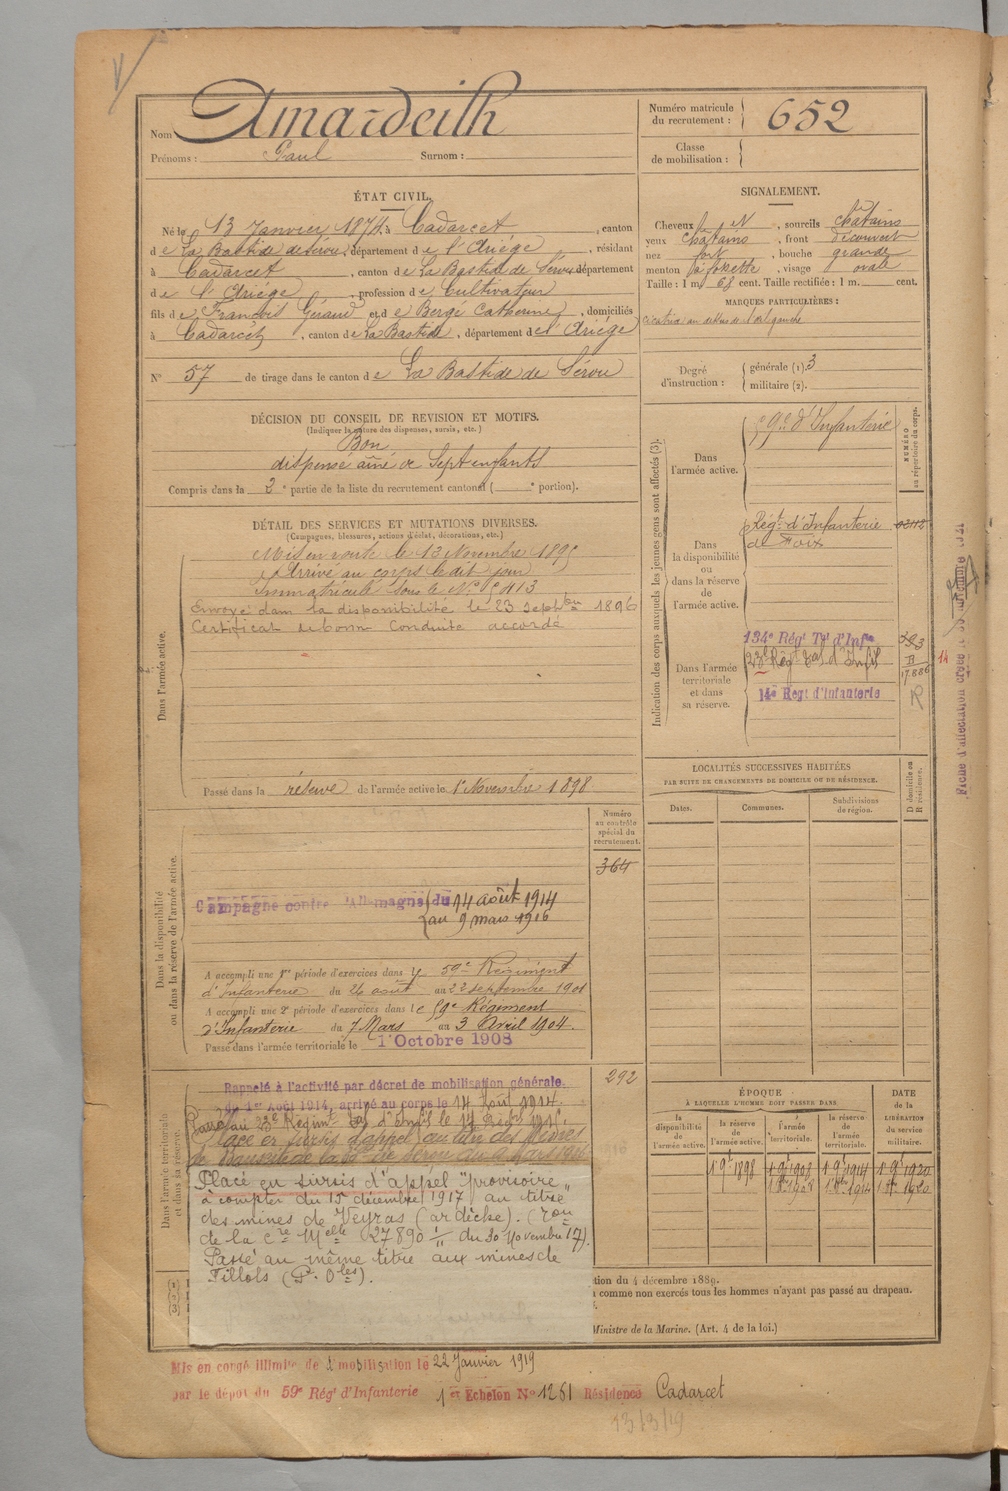 Nom Amardeilh
Prénoms : Paul Surnom :
Numéro matricule du recrutement : 652
Classe de mobilisation :
ÉTAT CIVIL.
Né le 13 Janvier 1874 à Cadarcet, canton
de La Bastide de Sérou, département de l'Ariége, résidant
à Cadarcet, canton de La Bastide de Sérou département
de l'Ariége, profession de Cultivateur
fils de François Géraud et de Bergé Catherine, domiciliés
à Cadarcet, canton de La Bastide, département de l'Ariége
N° 57 de tirage dans le canton de La Bastide de Sérou
SIGNALEMENT.
Cheveux N, sourcils châtains
yeux châtains, front découvert
nez fort, bouche grande
menton à fossette, visage ovale
Taille : 1 m. 68 cent. Taille rectifiée : 1 m. cent.
MARQUES PARTICULIÈRES :
Cicatrice au dessus de l'œil gauche
Degré d'instruction : générale (1). 3
militaire (2).
DÉCISION DU CONSEIL DE REVISION ET MOTIFS.
(Indiquer la nature des dispenses, sursis, etc.)
Bon
dispensé aîné de Sept enfants
Compris dans la 2e partie de la liste du recrutement cantonal ( e portion).
DÉTAIL DES SERVICES ET MUTATIONS DIVERSES.
(Campagnes, blessures, actions d'éclat, décorations, etc.)
Dans l'armée active.
Mis en route le 13 Novembre 1895
Arrivé au corps le dit jour
Immatriculé sous le N° 5413
Envoyé dans la disponibilité le 23 septbre 1896
Certificat de bonne Conduite accordé
Passé dans la réserve de l'armée active le 1er Novembre 1898
Indication des corps auxquels les jeunes gens sont affectés (3).
NUMÉRO au répertoire du corps.
Dans l'armée active.
59e d'Infanterie
Dans la disponibilité ou dans la réserve de l'armée active.
Régt d'Infanterie
de Foix
Dans l'armée territoriale et dans sa réserve.
134e Régt Tal d'Infie
23e Régt Tal d'Infie
14e Régt d'Infanterie
R
14
LOCALITÉS SUCCESSIVES HABITÉES
PAR SUITE DE CHANGEMENTS DE DOMICILE OU DE RÉSIDENCE.
D domicile ou R résidence.
Dates. Communes. Subdivisions de région.
Dans la disponibilité ou dans la réserve de l'armée active.
Numéro au contrôle spécial du recrutement.
364
Campagne contre l'Allemagne du 14 août 1914
au 9 mars 1916
A accompli une 1re période d'exercices dans le 59e Régiment
d'Infanterie du 26 août au 22 septembre 1901
A accompli une 2e période d'exercices dans le 59e Régiment
d'Infanterie du 7 Mars au 3 Avril 1904.
Passé dans l'armée territoriale le 1er Octobre 1908
Dans l'armée territoriale et dans sa réserve.
292
Rappelé à l'activité par décret de mobilisation générale
du 1er Août 1914, arrivé au corps le 14 Août 1914.
Placé en sursis d'appel "provisoire"
à compter du 15 décembre 1917 au titre
des mines de Veyras (ardèche).
de la Cre Melle 27890 1/11 du 30 Novembre 17).
Passé au même titre aux mines de
Fillols (P. Oles).
ÉPOQUE
À LAQUELLE L'HOMME DOIT PASSER DANS
la disponibilité de l'armée active.
la réserve de l'armée active.
l'armée territoriale.
la réserve de l'armée territoriale.
DATE de la LIBÉRATION du service militaire.
1er 9bre 1898 1er 9bre 1908 1er 9bre 1914 1er 9bre 1920
1er 8bre 1908 1er 8bre 1914 1er 8bre 1920
(1)
(2)
(3)
tion du 4 décembre 1889.
a comme non exercés tous les hommes n'ayant pas passé au drapeau.
Ministre de la Marine. (Art. 4 de la loi.)
Mis en congé illimité de démobilisation le 22 Janvier 1919
par le dépôt du 59e Régt d'Infanterie 1er Echelon N° 1261 Résidence Cadarcet
13/3/19